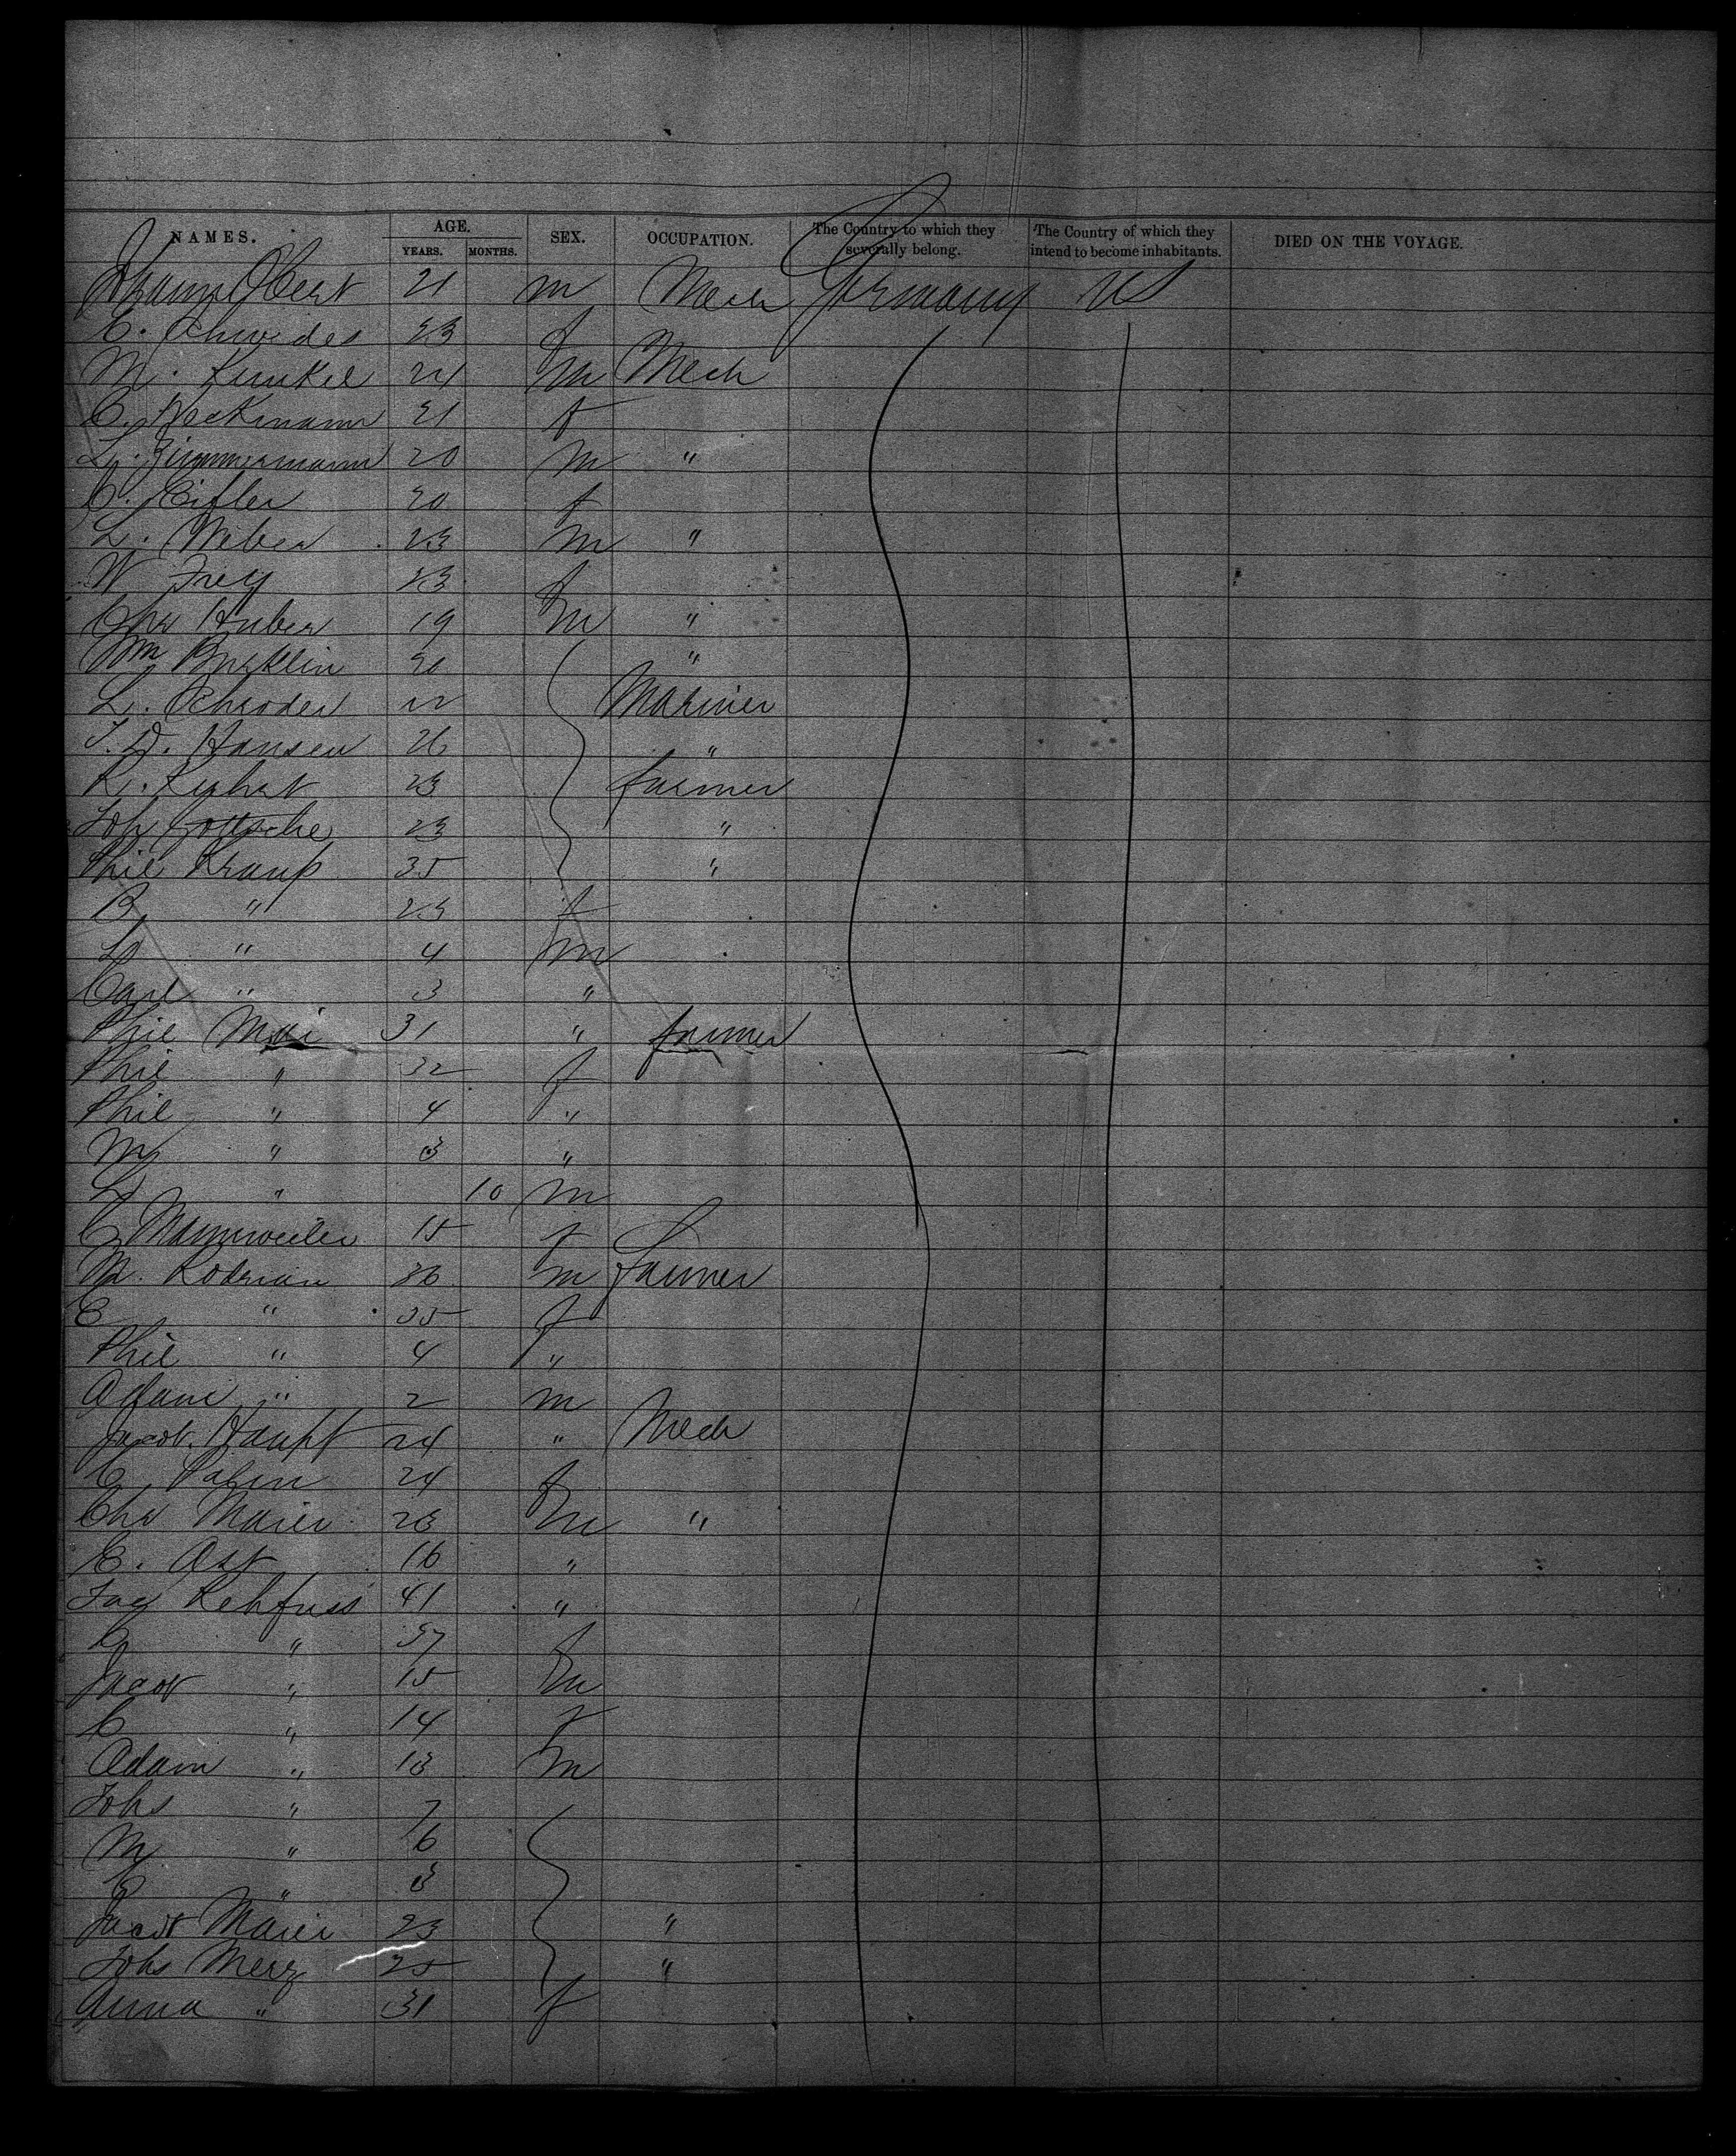 NAMES. AGE. YEARS. MONTHS. SEX. OCCUPATION. The Country to which they severally belong. The Country of which they intend to become inhabitants. DIED ON THE VOYAGE.
Johann Obert 21 m Mech Germany US
C. Schwedes 23 f
M. Kunkel 24 m Mech
C. Heckmann 21 f
L. Zimmermann 20 m "
C. Eifler 20 f
L. Weber 23 m "
W Frey 23 f
Chr Huber 19 m "
Wm Burklin 20 "
L. Schroder 22 Mariner
T. D. Hansen 26 "
K. 23 farmer
Joh Gottsche 23 "
Phil Kraup 35 "
B " 23 f
L " 4 m
Carl " 3 "
Phil Mai 31 " farmer
Phil " 32 f
Phil " 4 "
M " 3 "
L " 10 m
C Mannweiler 15 f
M. Rodrian 36 m farmer
C " 35 f
Phil " 4 "
Adam " 2 m
Jacob Haupt 24 " Mech
C 24 f
Chr Maier 23 m "
E. Ast 16 "
Jac Rehfuss 41 "
C " 37 f
Jacob " 15 m
C " 14 f
Adam " 13 m
Johs " 7
M " 6
C " 3
Jacob Maier 23 "
Johs Merz 25 "
Anna " 31 f